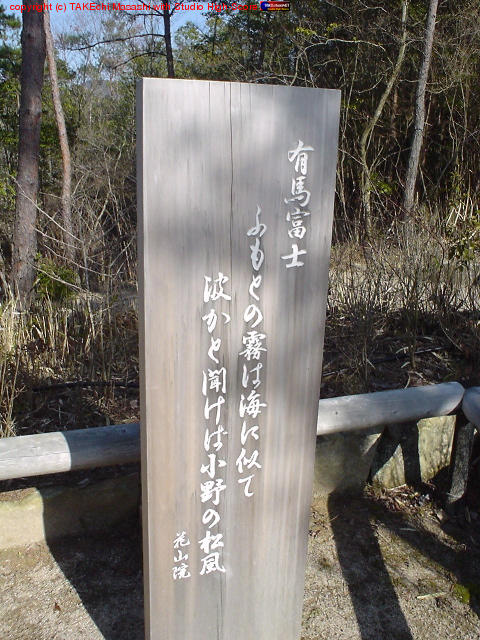 copyright (c) TAKEchi Masashi w/ Studio High Power
有馬富士
ふもとの霧は海に似て
波かと聞けは小野の松風
花山院